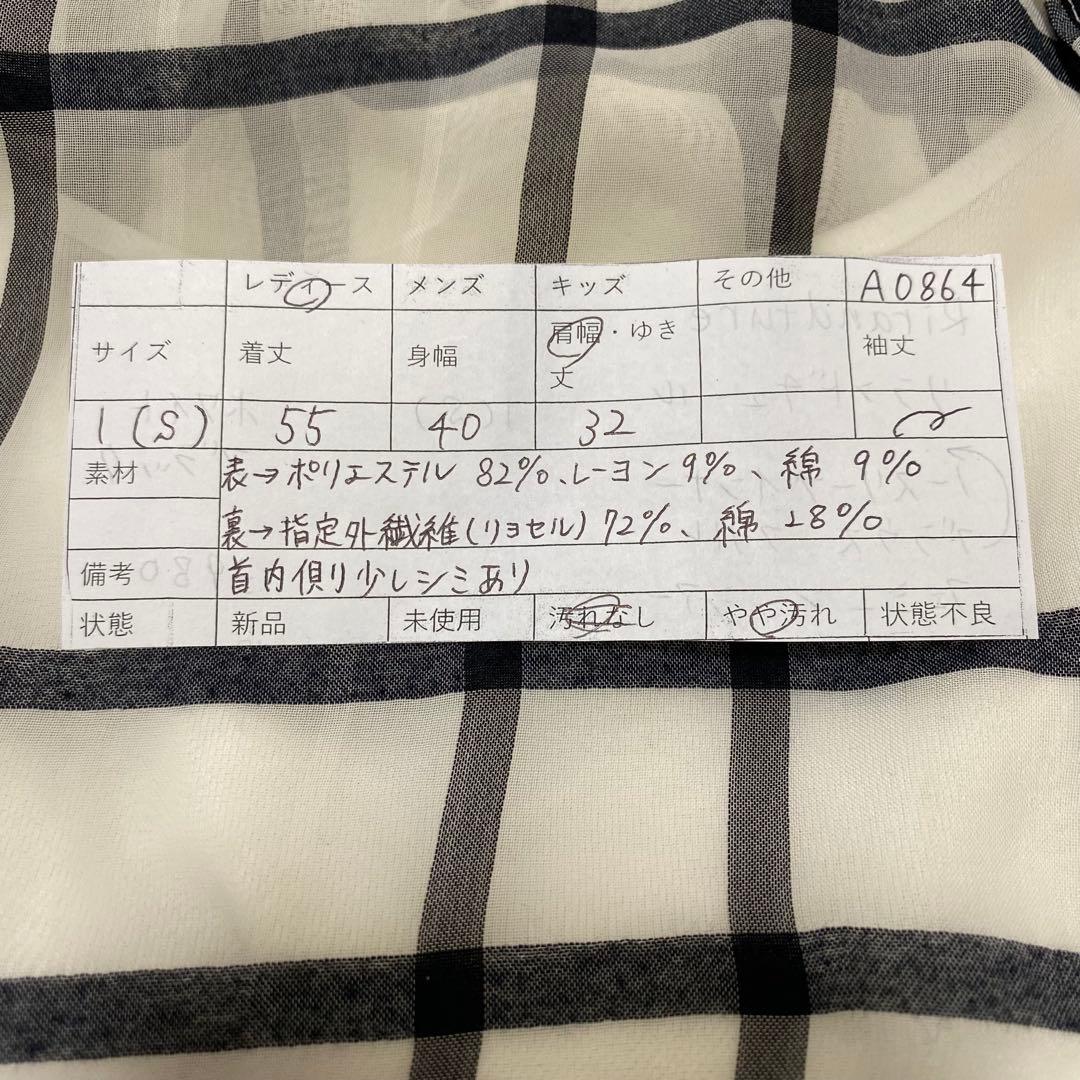 レディース メンズ キッズ その他 A0864
サイズ 着丈 身幅 肩幅・ゆき丈 袖丈
1(S) 55 40 32
素材 表→ポリエステル 82%、レーヨン 9%、綿 9%
裏→指定外繊維(リヨセル) 72%、綿 28%
備考 首内側り少しシミあり
状態 新品 未使用 汚れなし やや汚れ 状態不良